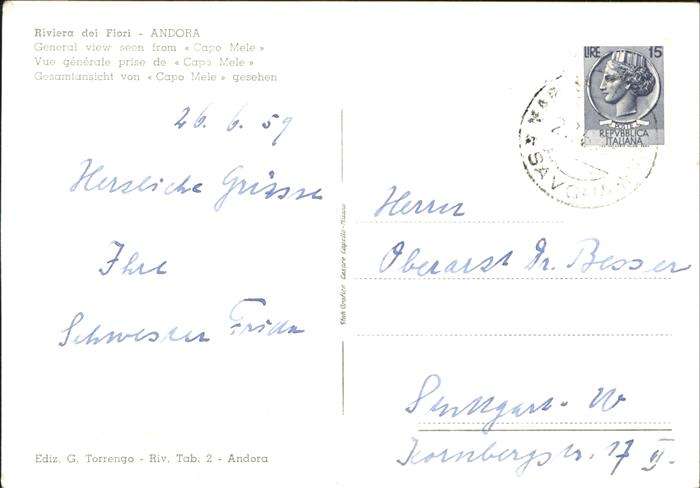 Riviera dei Fiori - ANDORA
General view seen from « Capo Mele »
Vue générale prise de « Capo Mele »
Gesamtansicht von « Capo Mele » gesehen
26. 6. 59
Herzliche Grüsse
Ihre
Schwester Frida
Ediz. G. Torrengo - Riv. Tab. 2 - Andora
LIRE 15
REPVBBLICA
ITALIANA
SAVONA
Herrn
Oberarzt Dr. Besser
Stuttgart-W
Kornbergstr. 17 II.